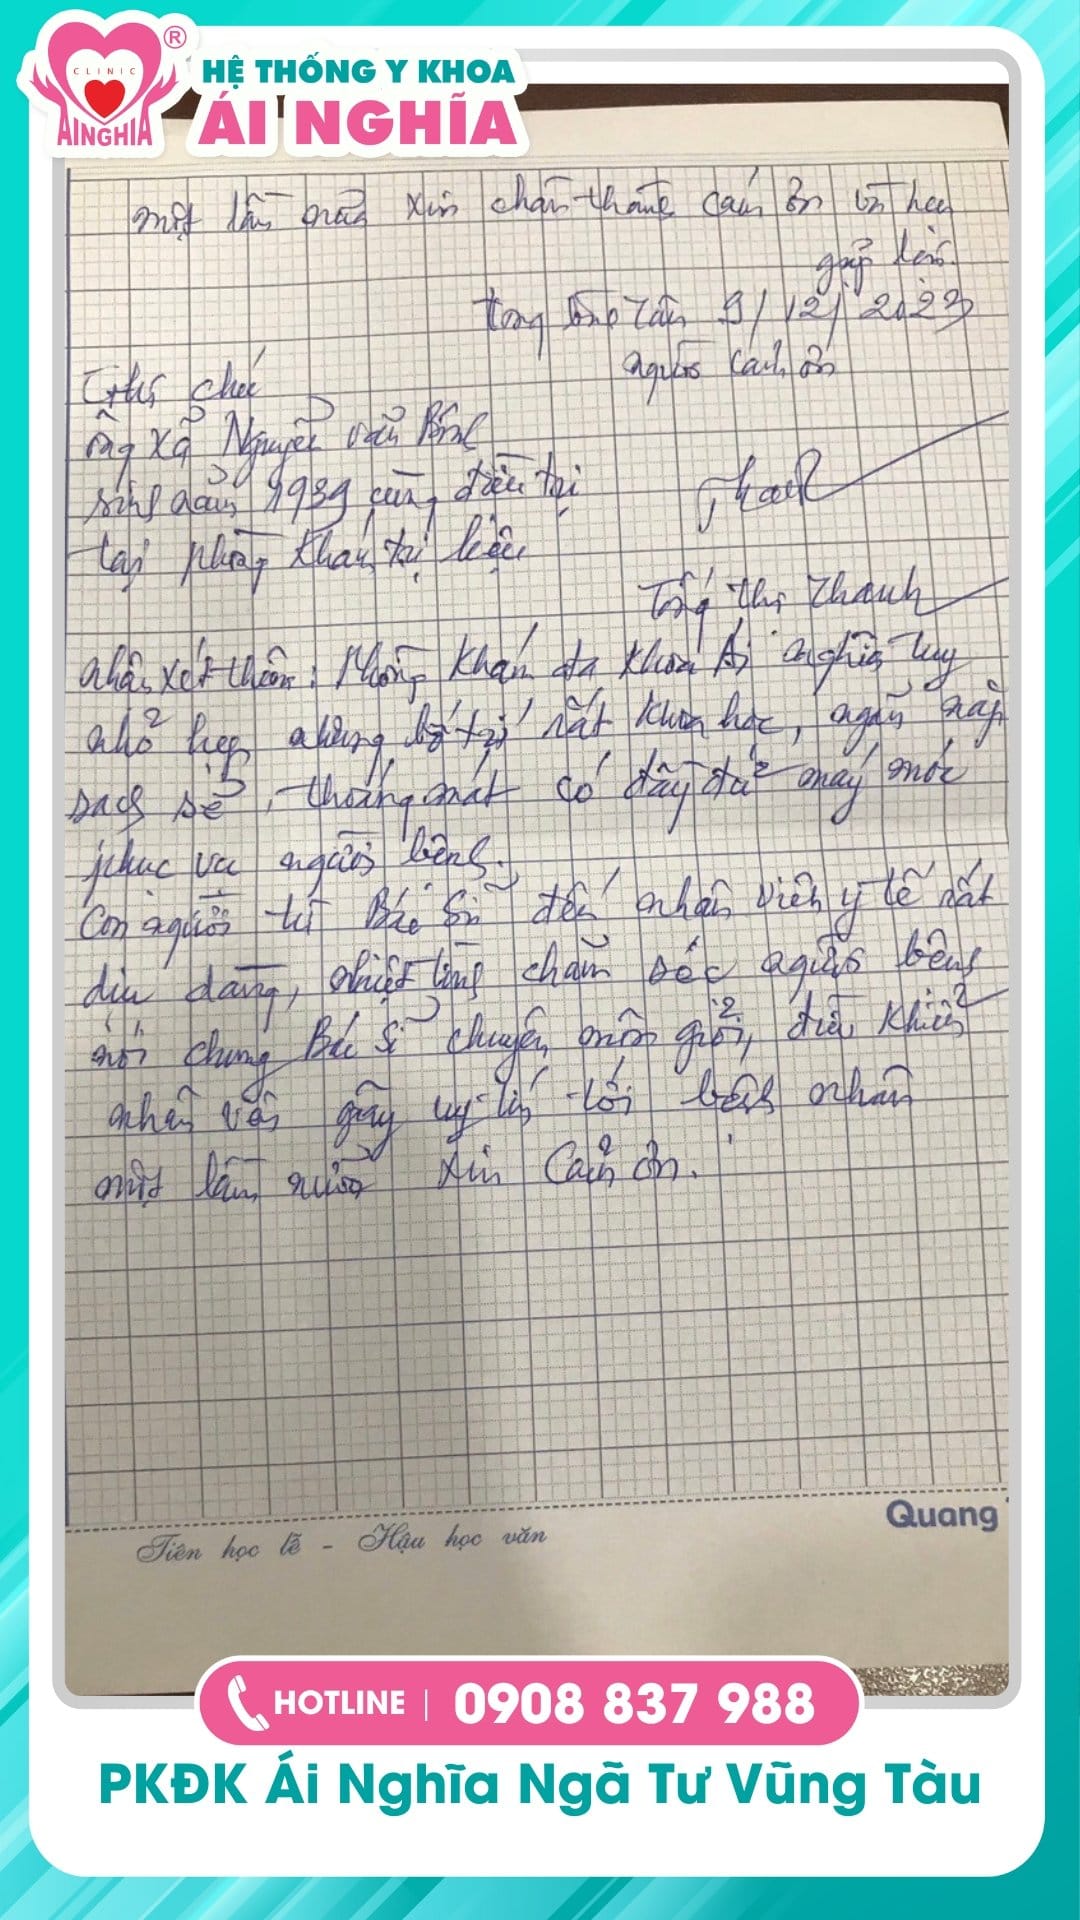 CLINIC
AINGHIA
®
HỆ THỐNG Y KHOA
ÁI NGHĨA
một lần nữa xin chân thành cám ơn và hẹn
gặp lại.
Long Bình Tân 9/12/2023
người cám ơn
Ghi chú
ông xã Nguyễn văn Bình
sinh năm 1939 cùng điều trị
tại phòng khám trị liệu
Tống Thị Thanh
nhận xét thêm: Phòng khám đa khoa Ái nghĩa tuy
nhỏ hẹp nhưng bố trí rất khoa học, ngăn nắp
sạch sẽ, thoáng mát có đầy đủ máy móc
phục vụ người bệnh.
Con người từ Bác Sĩ đến nhân viên y tế rất
dịu dàng, nhiệt tình chăm sóc người bệnh
nói chung Bác Sĩ chuyên môn giỏi, điều khiển
nhân viên gây uy tín tới bệnh nhân
một lần nữa xin Cảm ơn.
Quang
Tiên học lễ - Hậu học văn
HOTLINE | 0908 837 988
PKĐK Ái Nghĩa Ngã Tư Vũng Tàu